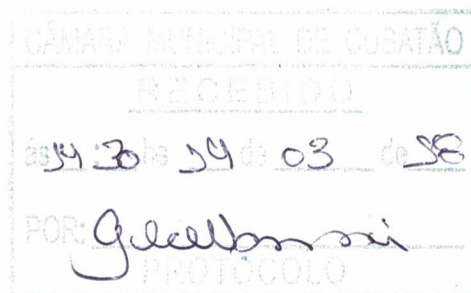 CÂMARA MUNICIPAL DE CUBATÃO
RECEBIDO
às 14 30 hs 14 de 03 de 18
POR:
PROTOCOLO